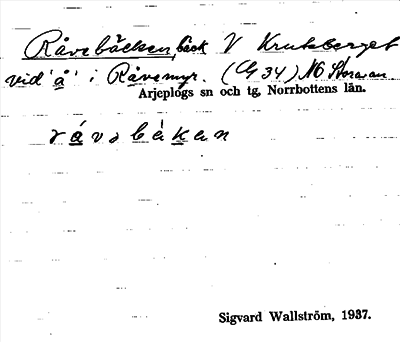 Råvebäcken, bäck V Krukberget
vid 'å' i Råvemyr. (G 34) NO Storavan
Arjeplogs sn och tg, Norrbottens län.
råvəbäkan
Sigvard Wallström, 1937.